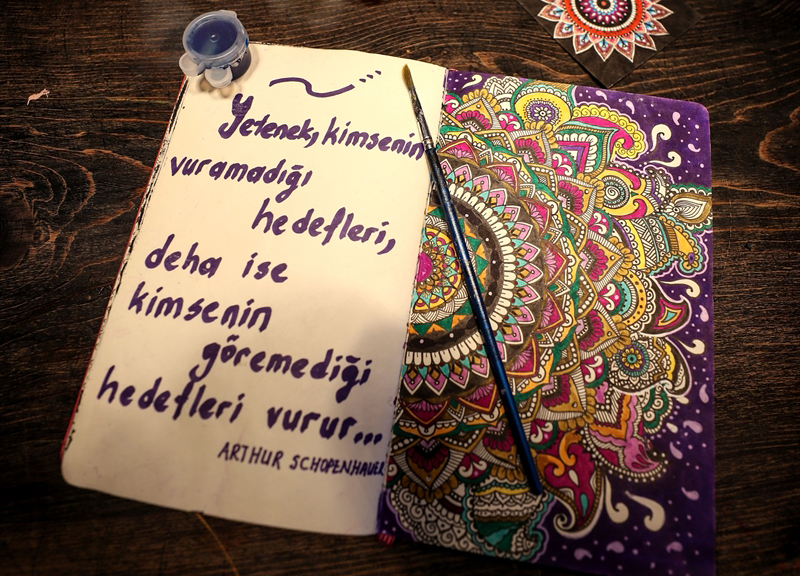 Yetenek, kimsenin
vuramadığı
hedefleri,
deha ise
kimsenin
göremediği
hedefleri vurur...
ARTHUR SCHOPENHAUER